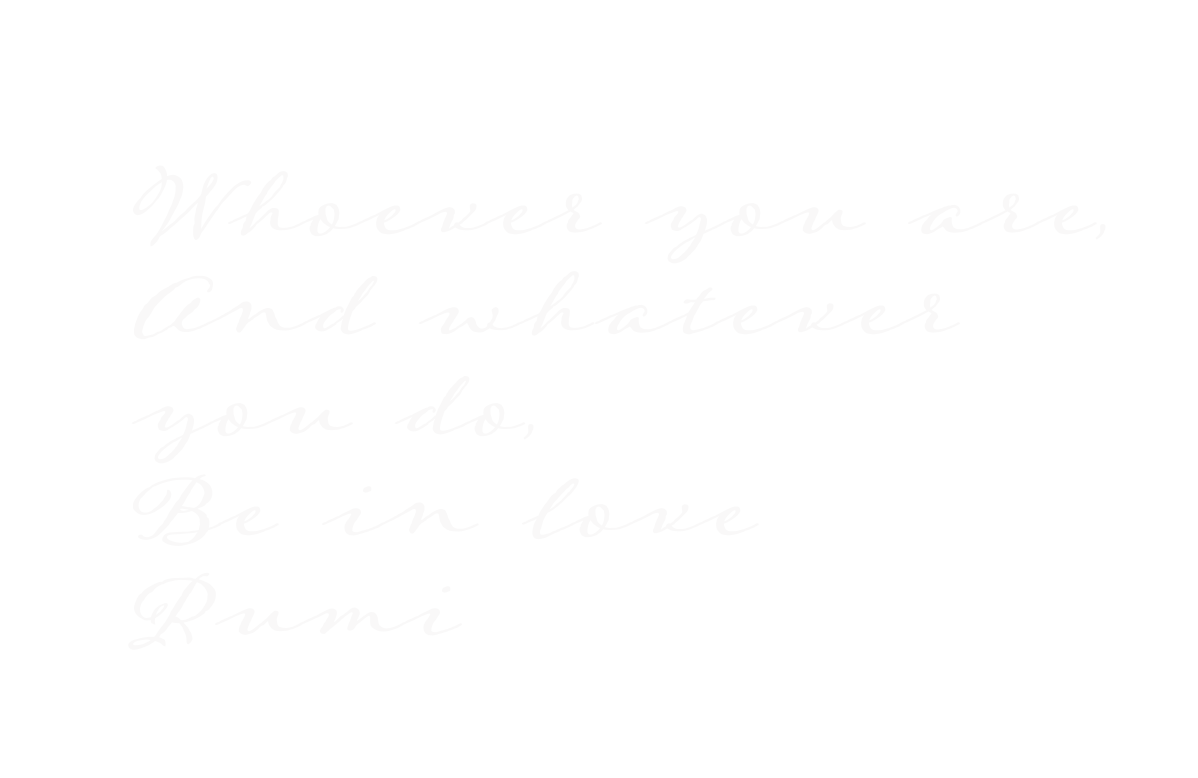 Whoever you are,
And whatever
you do,
Be in love
Rumi